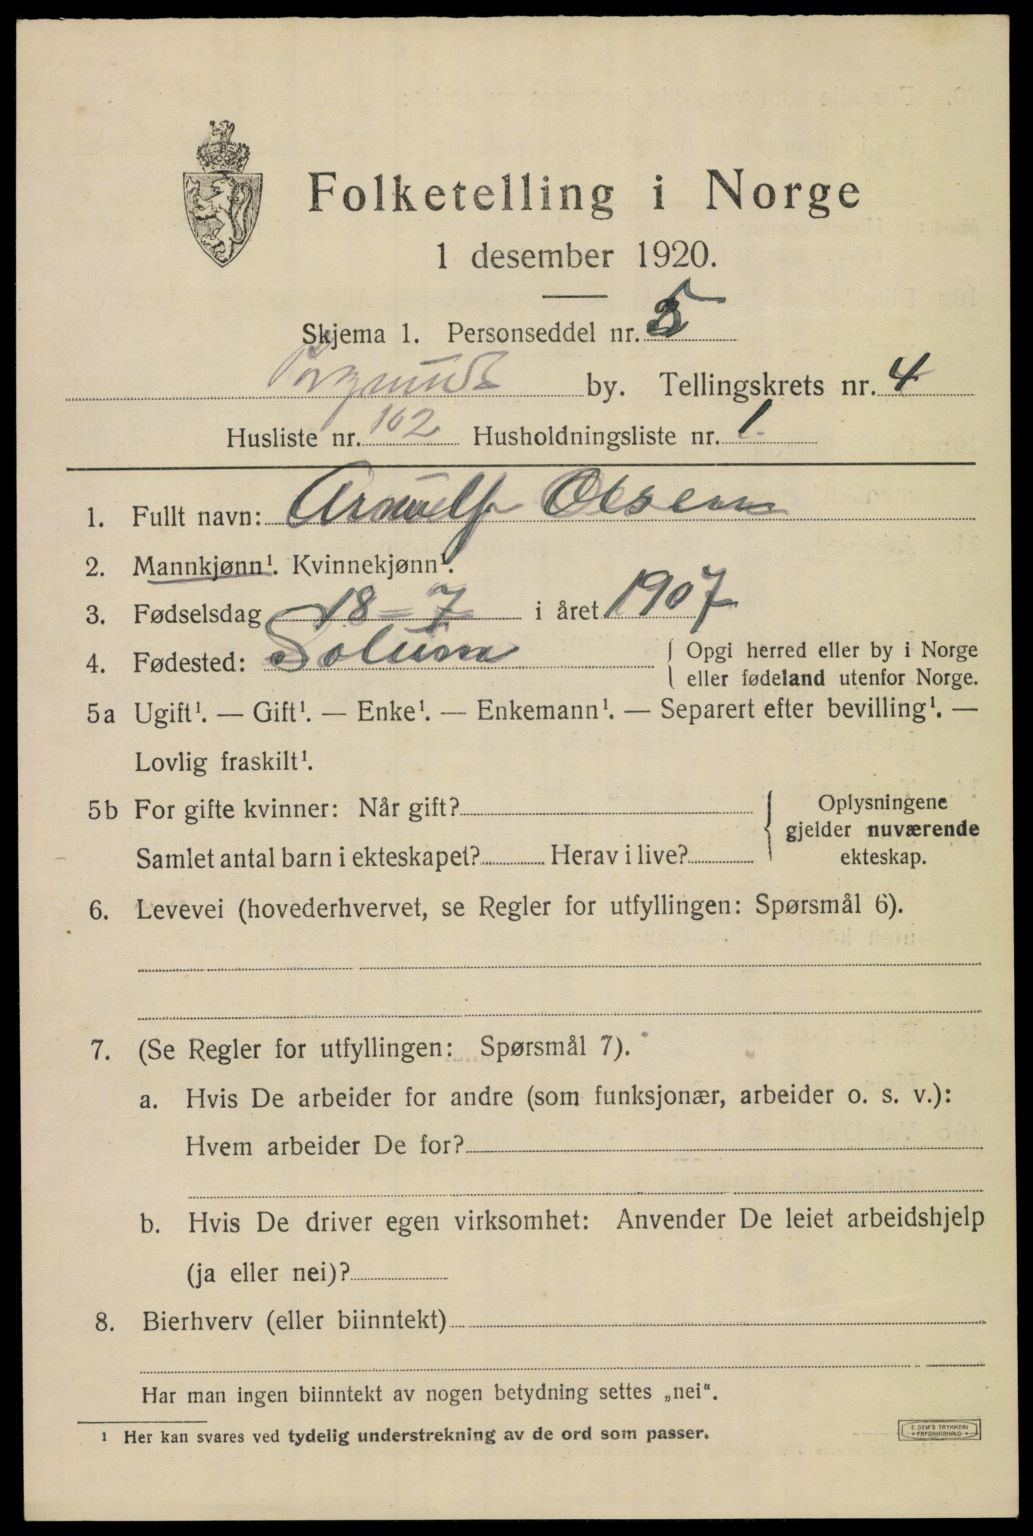 Folketelling i Norge
1 desember 1920.
Skjema 1. Personseddel nr. 5
Porsgrund by. Tellingskrets nr. 4
Husliste nr. 162 Husholdningsliste nr. 1.
1. Fullt navn: Arnulf Olsen
2. Mannkjønn¹. Kvinnekjønn¹.
3. Fødselsdag 18 - 7 i året 1907
4. Fødested: Solum { Opgi herred eller by i Norge
eller fødeland utenfor Norge.
5a Ugift¹. — Gift¹. — Enke¹. — Enkemann¹. — Separert efter bevilling¹. —
Lovlig fraskilt¹.
5b For gifte kvinner: Når gift?
Samlet antal barn i ekteskapet? Herav i live?
Oplysningene
gjelder nuværende
ekteskap.
6. Levevei (hovederhvervet, se Regler for utfyllingen: Spørsmål 6).
7. (Se Regler for utfyllingen: Spørsmål 7).
a. Hvis De arbeider for andre (som funksjonær, arbeider o. s. v.):
Hvem arbeider De for?
b. Hvis De driver egen virksomhet: Anvender De leiet arbeidshjelp
(ja eller nei)?
8. Bierhverv (eller biinntekt)
Har man ingen biinntekt av nogen betydning settes „nei“.
¹ Her kan svares ved tydelig understrekning av de ord som passer.
E. SEM'S TRYKKERI
FREDRIKSHALD